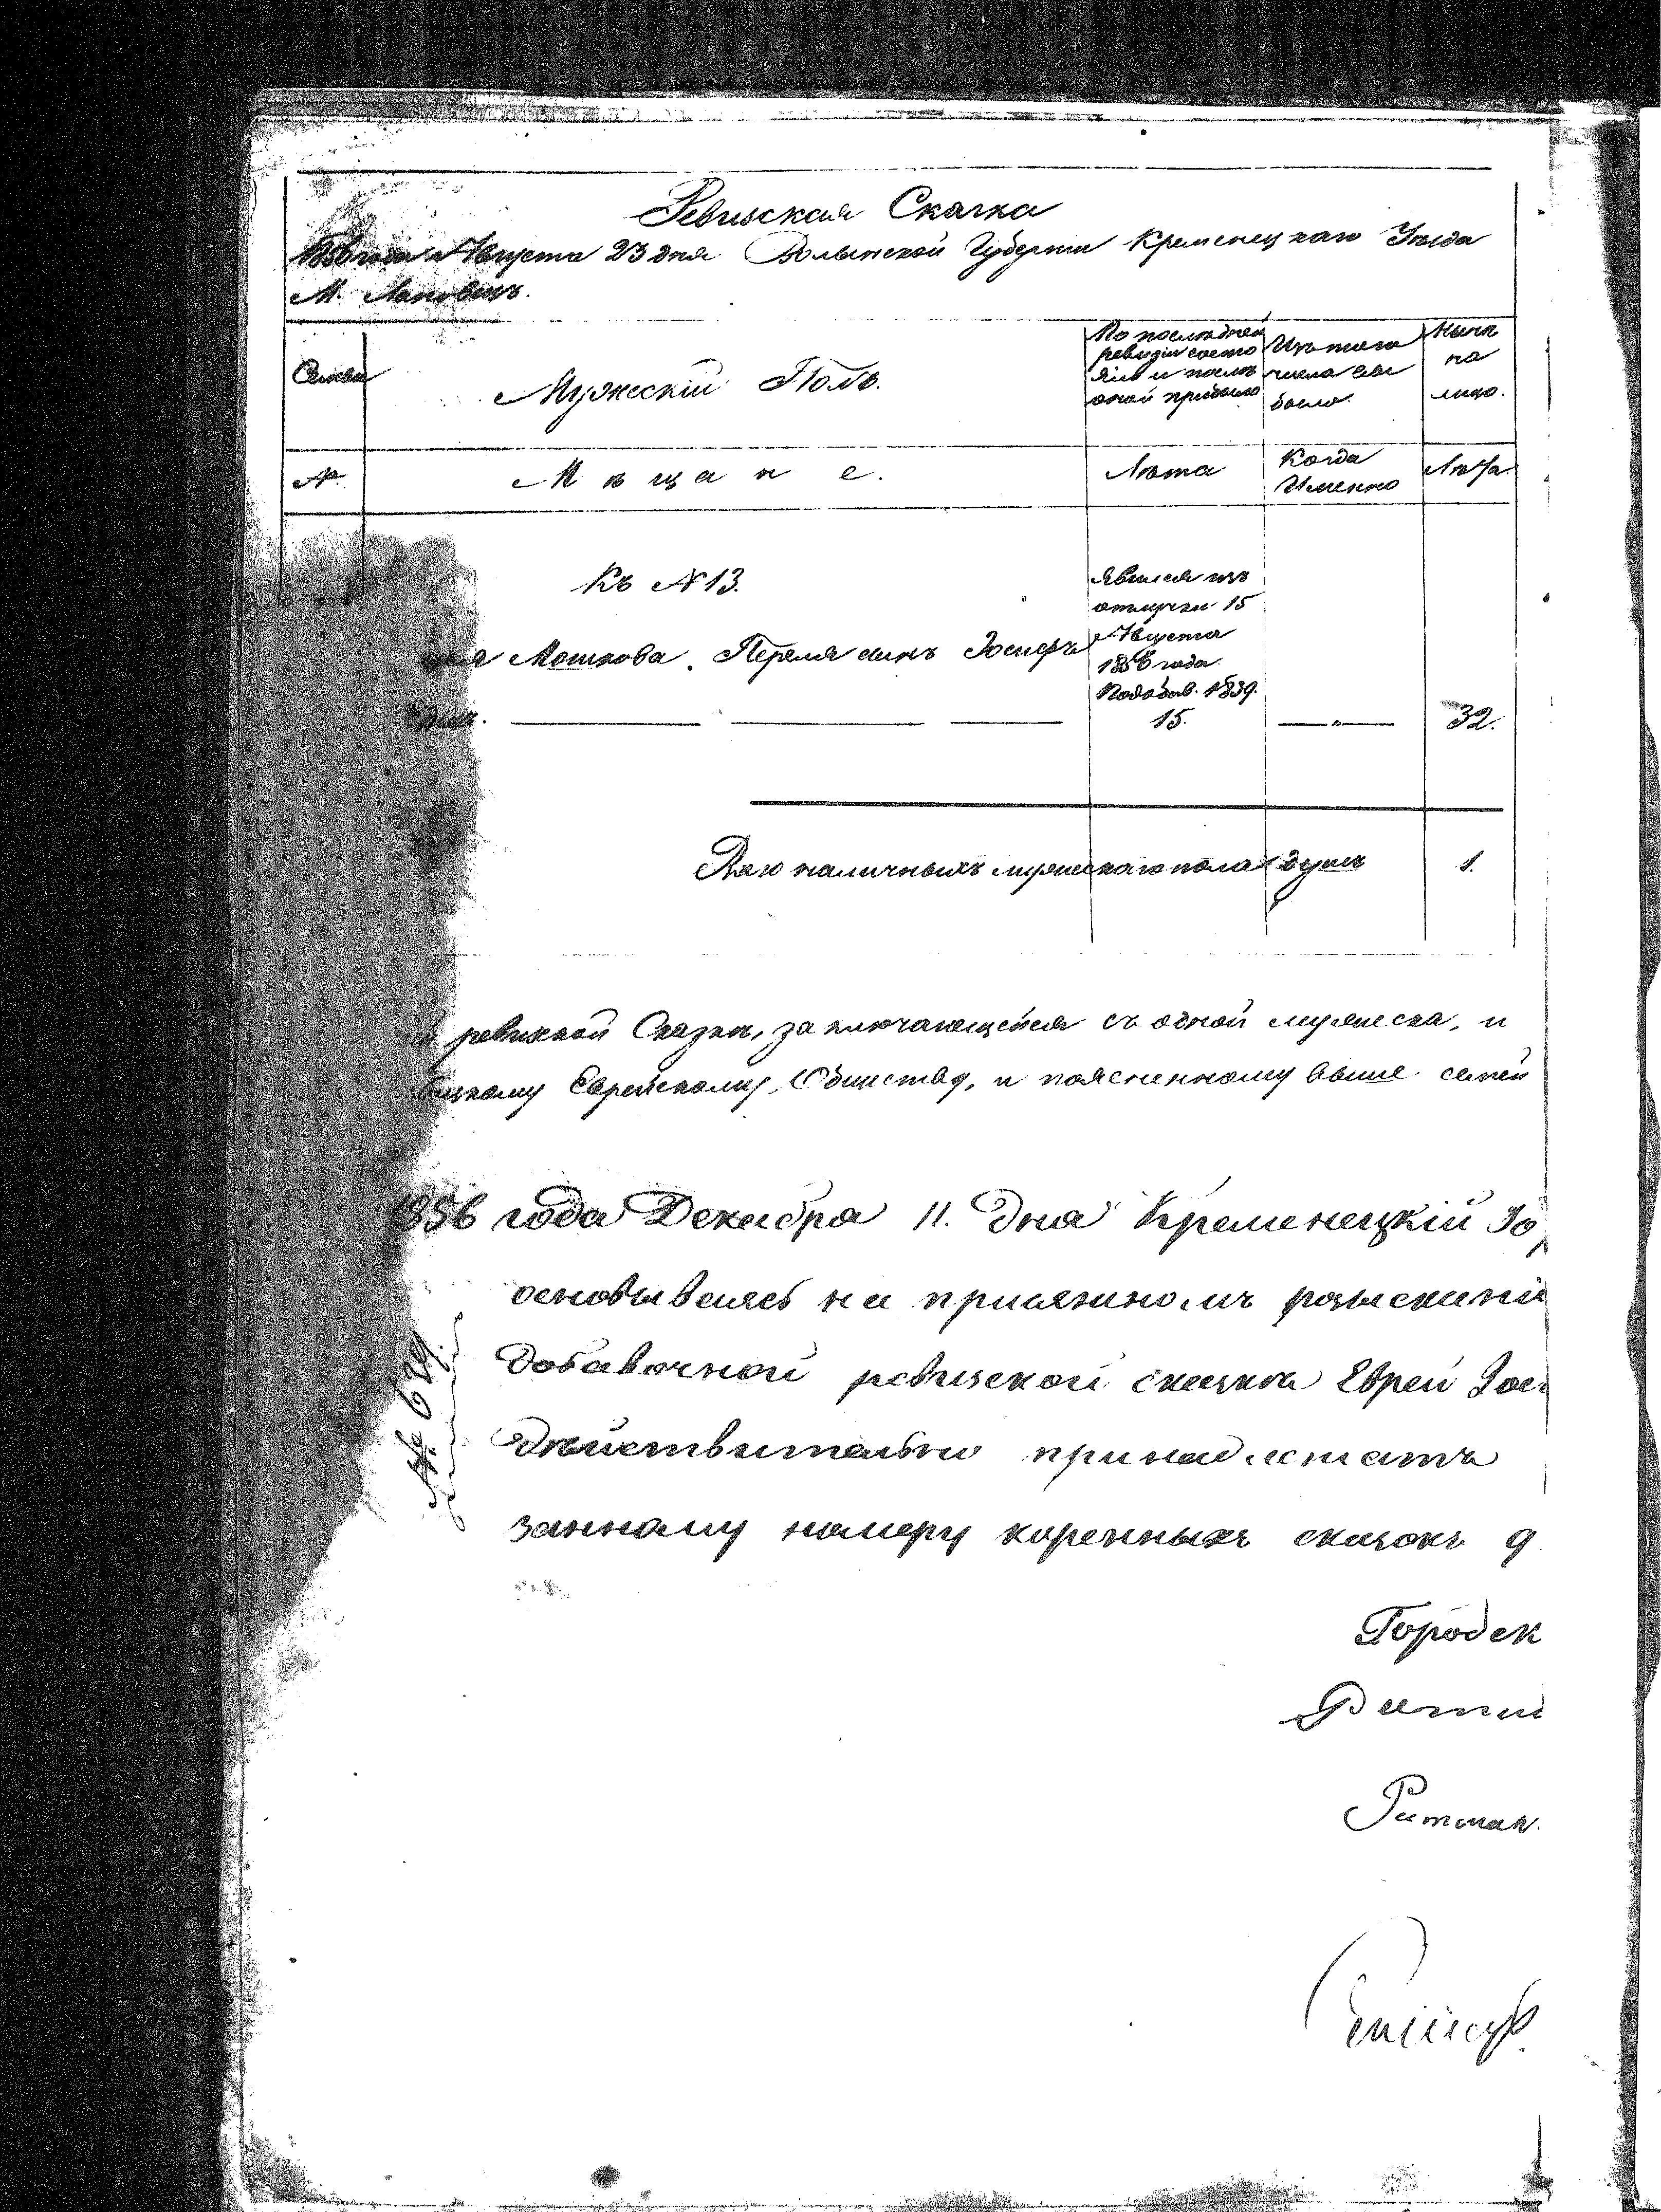 Ревизская Сказка
1856 года Августа 23 дня Волынской Губернии Кременецкаго Уезда
М. Лановецъ.
Семьи
Мужескій Полъ.
По последней
ревизіи состо
яло и после
оной прибыло
Изъ того
числа вы
было.
Ныне
на
лицо.
№
Мещане.
Лета
Когда
Именно
Лета.
Къ №13.
Явился изъ
отлучки 15
Августа
1856 года
Мошкова. Переля сынъ Іосифъ
1839.
15.
—„—
32.
наличныхъ мужескаго пола душъ
1.
ревизской Сказки, заключающейся съ одной мужеска, и
Еврейскому Обществу, и поясненному выше семей
1856 года Декабря 11. Дня Кременецкій Го
основываясь на присяжномъ разыскані
добавочной ревизской сказке Еврей Іос
действительно принадлежатъ
занному номеру коренныхъ сказокъ 9
№ 689.
Городск
Ратман.